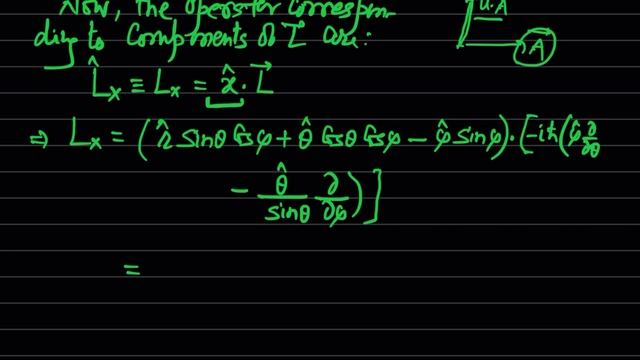 Now, the operator correspon-
ding to Components of L⃗ are:
û.A
A
L̂x ≡ Lx = x̂ . L⃗
⇒ Lx = (r̂ sinθ Cosφ + θ̂ Cosθ Cosφ − φ̂ sinφ) . [−iħ(φ̂ ∂/∂θ
− θ̂/sinθ ∂/∂φ)]
=